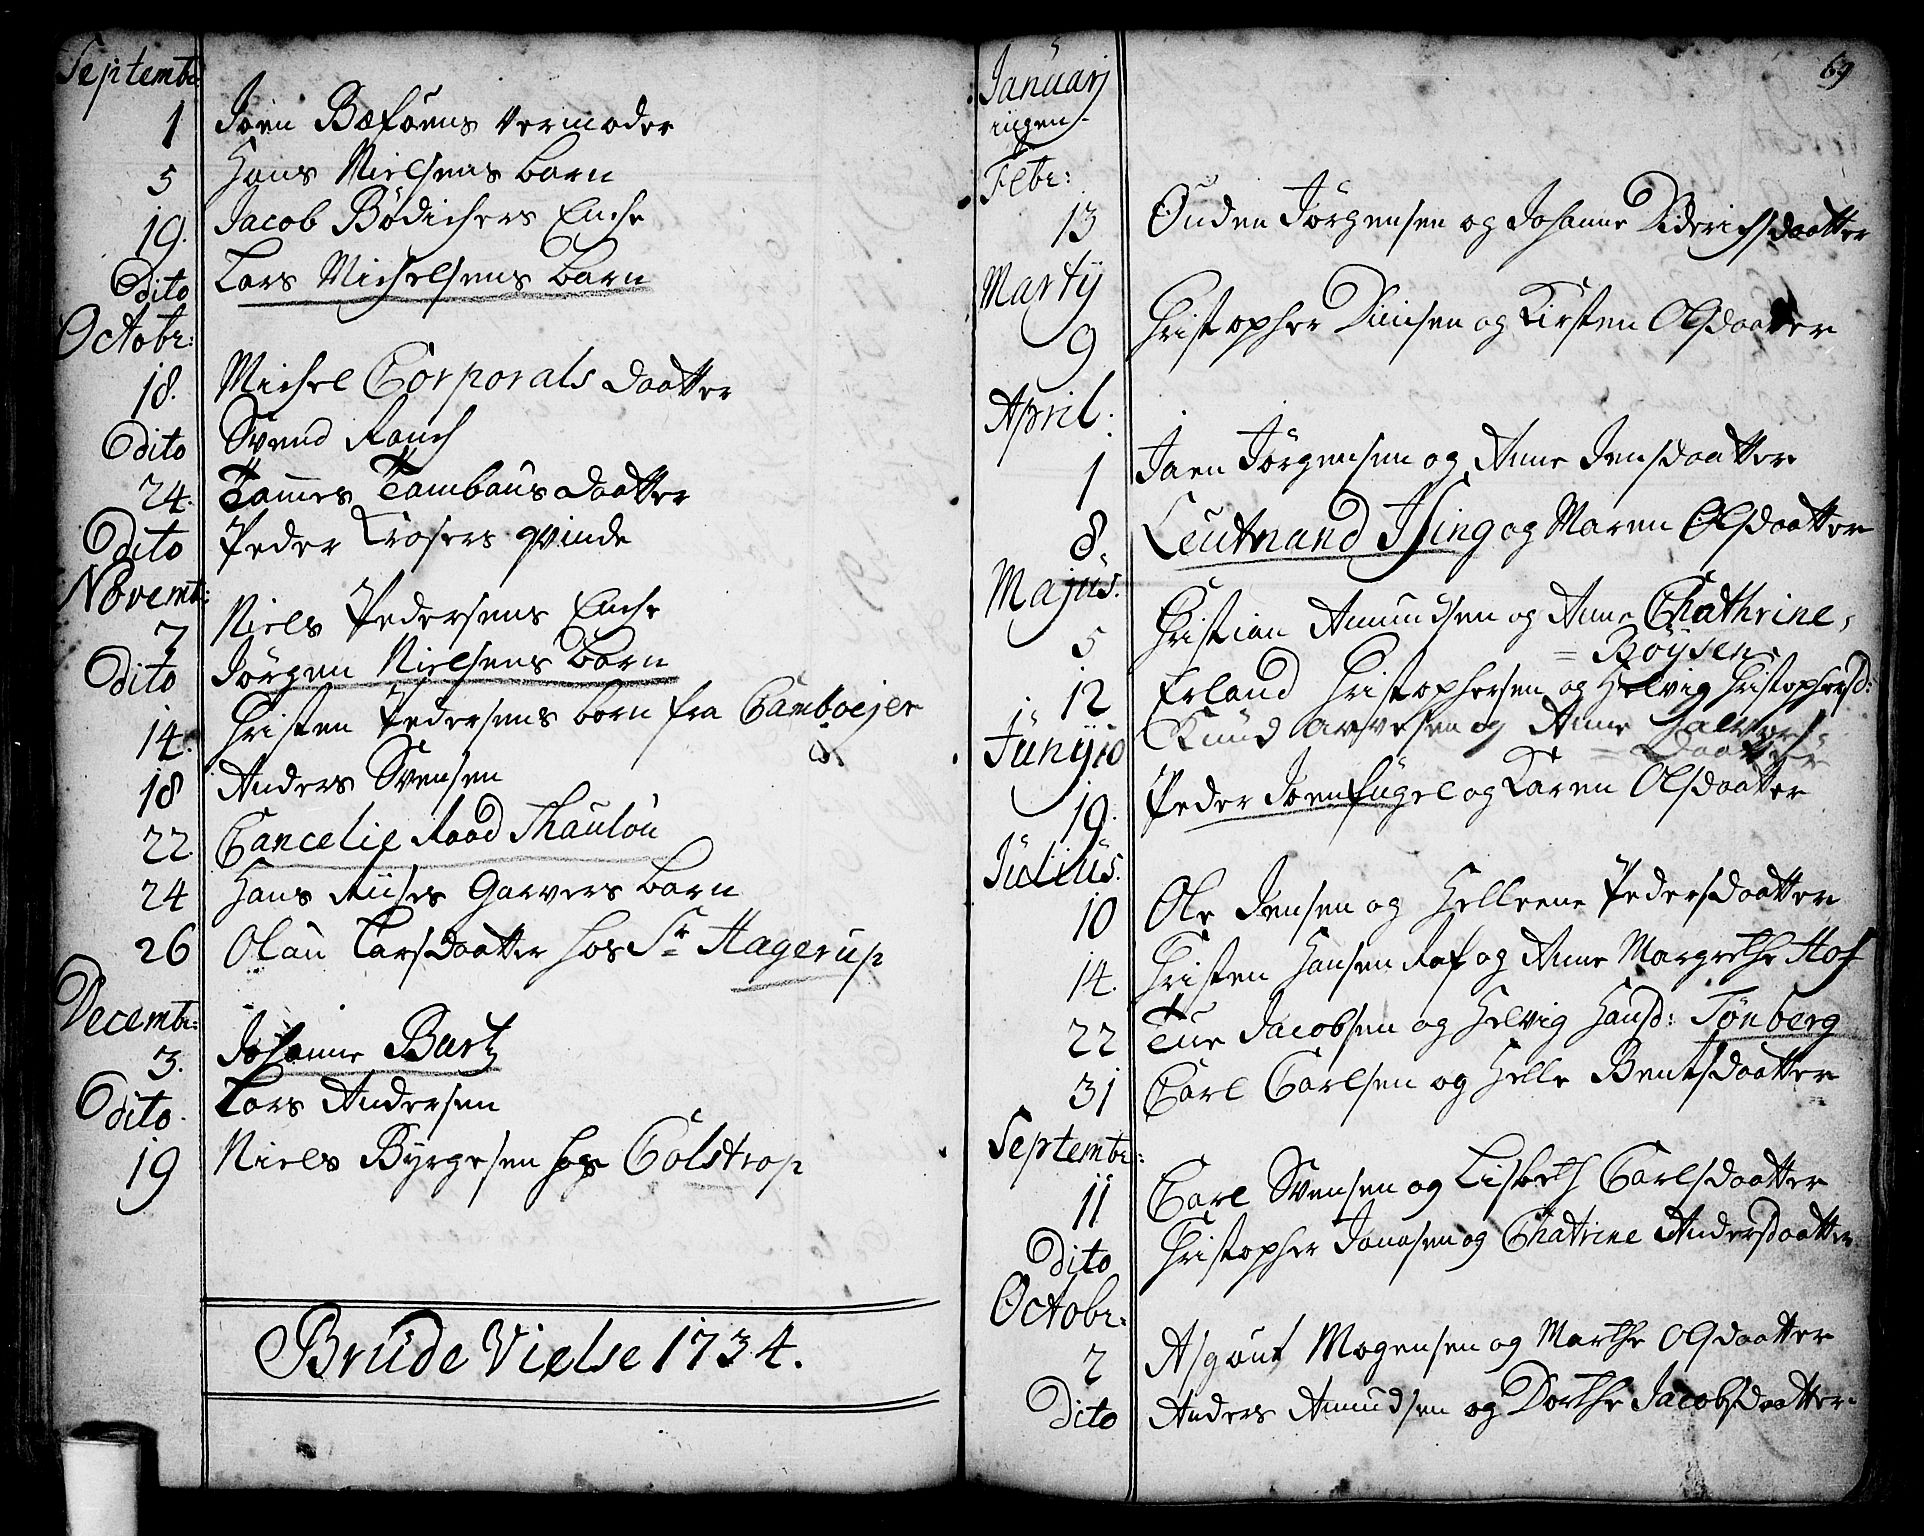 Septembr:
1 Joen Bæfoens Vermoder
5 Hans Nielsens barn
19. Jacob Bødichers Enche
Dito Lars Michelsens barn
Octobr:
18. Michel Corporals daatter
Dito Svend Rauch
24. Tammes Tambaurs daatter
Dito Peder Krøsers qvinde
Novemb:
7 Niels Pedersens Enche
Dito Jørgen Nielsens barn
14. Christen Pedersens barn fra Camboejer
18 Anders Svensen
22. Cancelie Raad Thaulou
24 Hans Riises Garvers barn
26 Olau Larsdaatter hos Sr Hagerup
Decembr:
3. Johanne Bartz
Dito. Lars Andersen
19 Niels Byrgesen hos Colstrop
Brude Vielse 1734.
69
Januarj
ingen.
Febr:
13 Ouden Jörgensen og Johanne Diderichsdaatter
Martij
9 Christopher Duusen og Kirsten Olsdaatter
April.
1 Joen Jörgensen og Anne Jensdaatter
8. Leutnand Ising og Maren Olsdaatter
Majus.
5 Christian Amundsen og Anne Chathrine,
= Böysen.
12 Erland Christophersen og Helvig Christophersd:
Junij 10 Knud Arvesen og Anne Halvors=
= Daatter
19. Peder Joenfugel og Karen Olsdaatter
Julius.
10 Ole Jensen og Helleene Pedersdaatter
14. Christen Hansen Raf og Anne Margrethe Hof
22 Tue Jacobsen og Helvig Hansd: Tønberg
31 Carl Carlsen og Helle Bentsdaatter
Septembr:
11 Carl Svensen og Lisbeth Carlsdaatter
Dito Christopher Jonasen og Chatrine Andersdaatter.
Octobr:
2 Asgout Mogensen og Marthe Olsdaatter
Dito Anders Amundsen og Dorthe Jacobsdaatter.